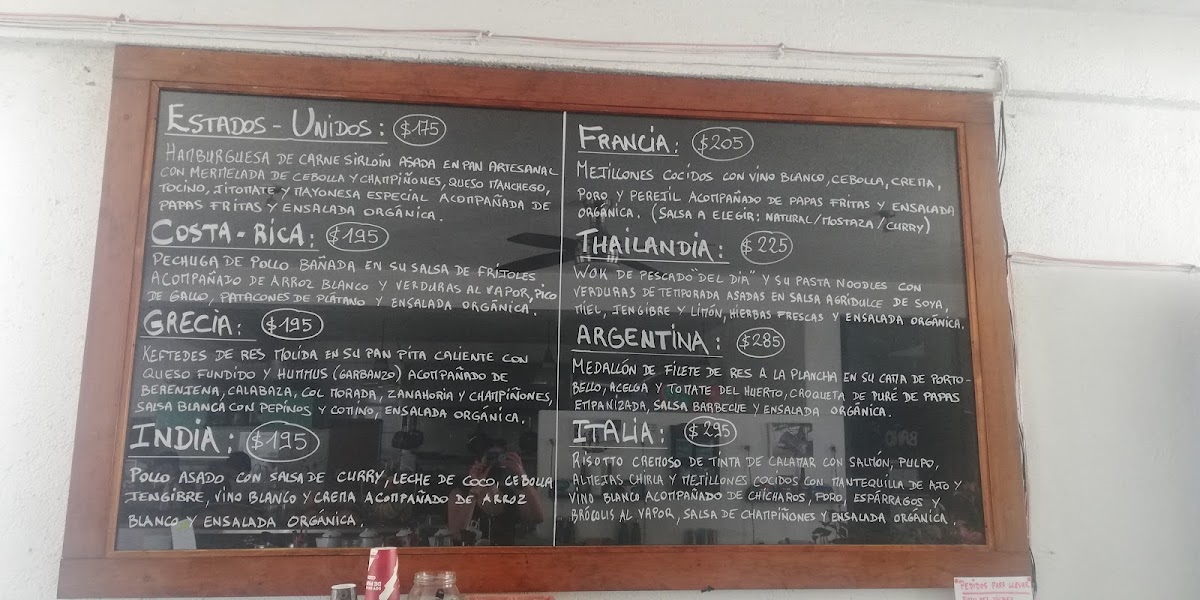 ESTADOS-UNIDOS: $175
HAMBURGUESA DE CARNE SIRLOÍN ASADA EN PAN ARTESANAL
CON MERMELADA DE CEBOLLA Y CHAMPIÑONES, QUESO MANCHEGO,
TOCINO, JITOMATE Y MAYONESA ESPECIAL ACOMPAÑADA DE
PAPAS FRITAS Y ENSALADA ORGÁNICA.
COSTA-RICA: $195
PECHUGA DE POLLO BAÑADA EN SU SALSA DE FRIJOLES
ACOMPAÑADO DE ARROZ BLANCO Y VERDURAS AL VAPOR, PICO
DE GALLO, PATACONES DE PLÁTANO Y ENSALADA ORGÁNICA.
GRECIA: $195
KEFTEDES DE RES MOLIDA EN SU PAN PITA CALIENTE CON
QUESO FUNDIDO Y HUMMUS (GARBANZO) ACOMPAÑADO DE
BERENJENA, CALABAZA, COL MORADA, ZANAHORIA Y CHAMPIÑONES,
SALSA BLANCA CON PEPINOS Y COMINO, ENSALADA ORGÁNICA.
INDIA: $195
POLLO ASADO CON SALSA DE CURRY, LECHE DE COCO, CEBOLLA
JENGIBRE, VINO BLANCO Y CREMA ACOMPAÑADO DE ARROZ
BLANCO Y ENSALADA ORGÁNICA.
FRANCIA: $205
METJILLONES COCIDOS CON VINO BLANCO, CEBOLLA, CREMA,
PORO Y PEREJIL ACOMPAÑADO DE PAPAS FRITAS Y ENSALADA
ORGÁNICA. (SALSA A ELEGIR: NATURAL/MOSTAZA/CURRY)
THAILANDIA: $225
WOK DE PESCADO "DEL DÍA" Y SU PASTA NOODLES CON
VERDURAS DE TEMPORADA ASADAS EN SALSA AGRIDULCE DE SOYA,
MIEL, JENGIBRE Y LIMÓN, HIERBAS FRESCAS Y ENSALADA ORGÁNICA.
ARGENTINA: $285
MEDALLÓN DE FILETE DE RES A LA PLANCHA EN SU CAMA DE PORTO-
BELLO, ACELGA Y TOMATE DEL HUERTO, CROQUETA DE PURÉ DE PAPAS
EMPANIZADA, SALSA BARBECUE Y ENSALADA ORGÁNICA.
ITALIA: $295
RISOTTO CREMOSO DE TINTA DE CALAMAR CON SALMÓN, PULPO,
ALMEJAS CHIRLA Y METJILLONES COCIDOS CON MANTEQUILLA DE AJO Y
VINO BLANCO ACOMPAÑADO DE CHÍCHAROS, PORO, ESPÁRRAGOS Y
BRÓCOLIS AL VAPOR, SALSA DE CHAMPIÑONES Y ENSALADA ORGÁNICA.
PEDIDOS PARA LLEVAR